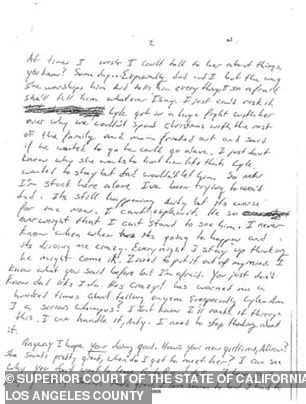 2
At times I wish I could talk to her about things,
you know? Some day... Especially dad and I but the way
she worships him and tells him everything I so afraid
she'll tell him whatever I say. I just can't risk it.
Lyle got in a huge fight with her
over why we couldn't spend Christmas with the rest
of the family and mom freaked out and said
if he wants to go he could go alone. I just don't
know why she wants to hurt him like that. Lyle
wanted to stay but dad wouldn't let him. So now
I'm stuck here alone I've been trying to avoid
dad. Its still happening Andy but its worse
for me now. I can't explain it. He so
overweight that I can't stand to see him. I never
know when its going to happen and
its driving me crazy. Every night I stay up thinking
he might come in. I need to put it out of my mind. I
know what you said before but I'm afraid. You just don't
know dad like I do. Hes crazy! hes warned me a
hundred times about telling anyone especially Lyle. Am
I a serious whimpus? I don't know I'll make it through
this. I can handle it, Andy. I need to stop thinking about
it.
Anyway I hope your doing good. Hows your new girlfriend,
She sounds pretty great, when do I get to meet her? I can see
why you
© SUPERIOR COURT OF THE STATE OF CALIFORNIA
LOS ANGELES COUNTY